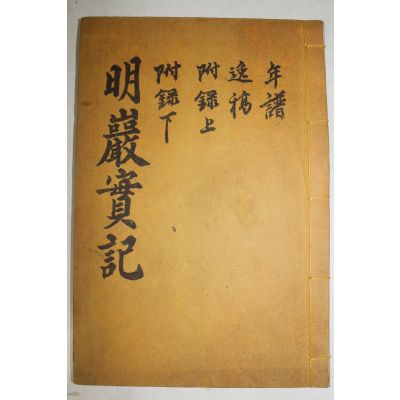 年譜
逸稿
附錄上
附錄下
明巖實記